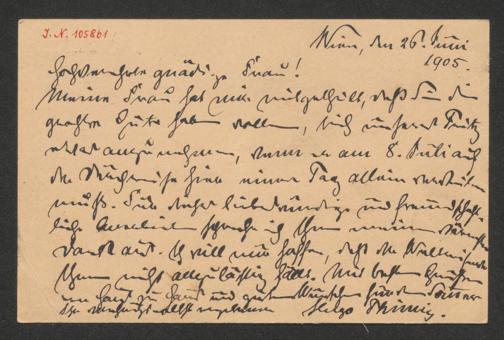 J. N. 105861
Wien, den 26. Juni
1905.
Hochverehrte gnädige Frau!
Meine Frau hat mir mitgetheilt, daß Sie die
große Güte haben wollen, sich unseres Fritz
etwas anzunehmen, wenn er am 8. Juli auf
der Durchreise hier einen Tag allein
muß. Für dieses liebenswürdige und freundschaft-
liche Anerbieten spreche ich Ihnen meinen
Dank aus. Ich will nur hoffen, daß die
Ihnen nicht allzu lästig fällt. Mit besten Grüßen
von Haus zu Haus und guten Wünschen für den Sommer
Ihr ergebener Hugo Thimig.